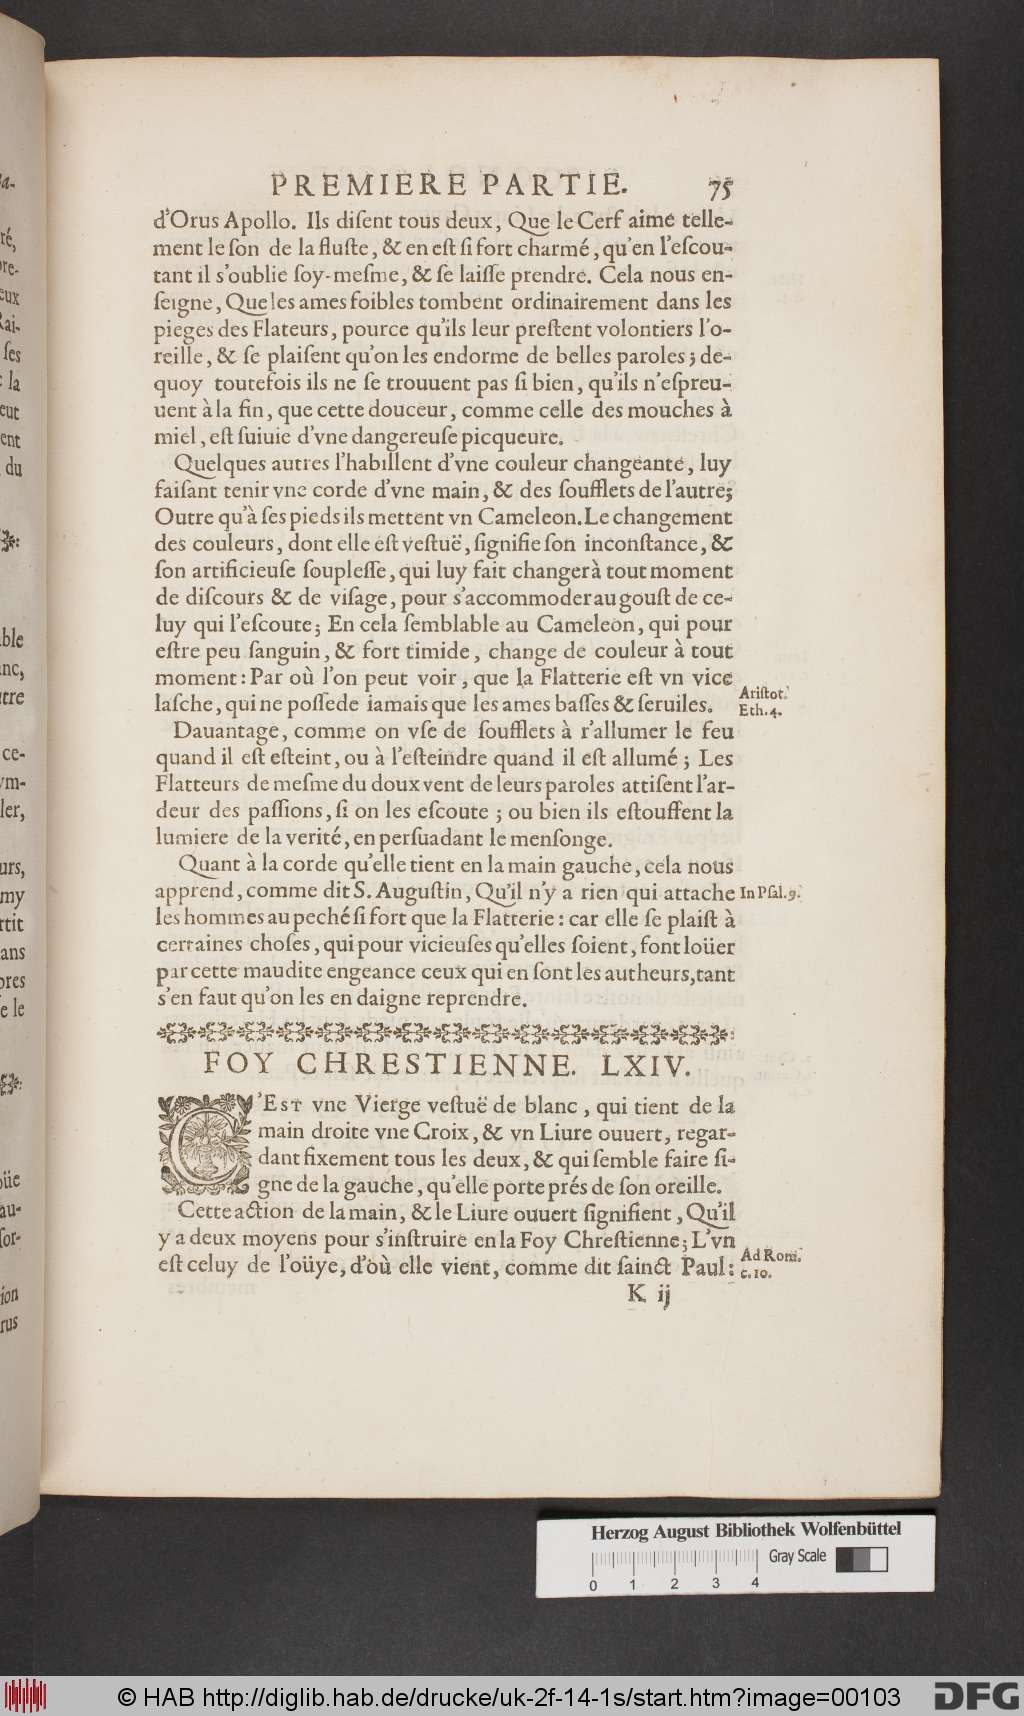 PREMIERE PARTIE. 75
d'Orus Apollo. Ils diſent tous deux, Que le Cerf aime telle-
ment le ſon de la fluſte, & en eſt ſi fort charmé, qu'en l'eſcou-
tant il s'oublie ſoy-meſme, & ſe laiſſe prendre. Cela nous en-
ſeigne, Que les ames foibles tombent ordinairement dans les
pieges des Flateurs, pource qu'ils leur preſtent volontiers l'o-
reille, & ſe plaiſent qu'on les endorme de belles paroles; de-
quoy toutefois ils ne ſe trouuent pas ſi bien, qu'ils n'eſpreu-
uent à la fin, que cette douceur, comme celle des mouches à
miel, eſt ſuiuie d'vne dangereuſe picqueure.
Quelques autres l'habillent d'vne couleur changeante, luy
faiſant tenir vne corde d'vne main, & des ſoufflets de l'autre;
Outre qu'à ſes pieds ils mettent vn Cameleon. Le changement
des couleurs, dont elle eſt veſtuë, ſignifie ſon inconſtance, &
ſon artificieuſe ſoupleſſe, qui luy fait changer à tout moment
de diſcours & de viſage, pour s'accommoder au gouſt de ce-
luy qui l'eſcoute; En cela ſemblable au Cameleon, qui pour
eſtre peu ſanguin, & fort timide, change de couleur à tout
moment: Par où l'on peut voir, que la Flatterie eſt vn vice
laſche, qui ne poſſede iamais que les ames baſſes & ſeruiles.
Ariſtot.
Eth. 4.
Dauantage, comme on vſe de ſoufflets à r'allumer le feu
quand il eſt eſteint, ou à l'eſteindre quand il eſt allumé; Les
Flatteurs de meſme du doux vent de leurs paroles attiſent l'ar-
deur des paſſions, ſi on les eſcoute; ou bien ils eſtouffent la
lumiere de la verité, en perſuadant le menſonge.
Quant à la corde qu'elle tient en la main gauche, cela nous
apprend, comme dit S. Auguſtin, Qu'il n'y a rien qui attache
In Pſal. 9.
les hommes au peché ſi fort que la Flatterie: car elle ſe plaiſt à
certaines choſes, qui pour vicieuſes qu'elles ſoient, font loüer
par cette maudite engeance ceux qui en ſont les autheurs, tant
s'en faut qu'on les en daigne reprendre.
FOY CHRESTIENNE. LXIV.
C'EST vne Vierge veſtuë de blanc, qui tient de la
main droite vne Croix, & vn Liure ouuert, regar-
dant fixement tous les deux, & qui ſemble faire ſi-
gne de la gauche, qu'elle porte prés de ſon oreille.
Cette action de la main, & le Liure ouuert ſignifient, Qu'il
y a deux moyens pour s'inſtruire en la Foy Chreſtienne; L'vn
eſt celuy de l'oüye, d'où elle vient, comme dit ſainct Paul:
Ad Rom.
c. 10.
K ij
Herzog August Bibliothek Wolfenbüttel
Gray Scale
0 1 2 3 4
© HAB http://diglib.hab.de/drucke/uk-2f-14-1s/start.htm?image=00103
DFG